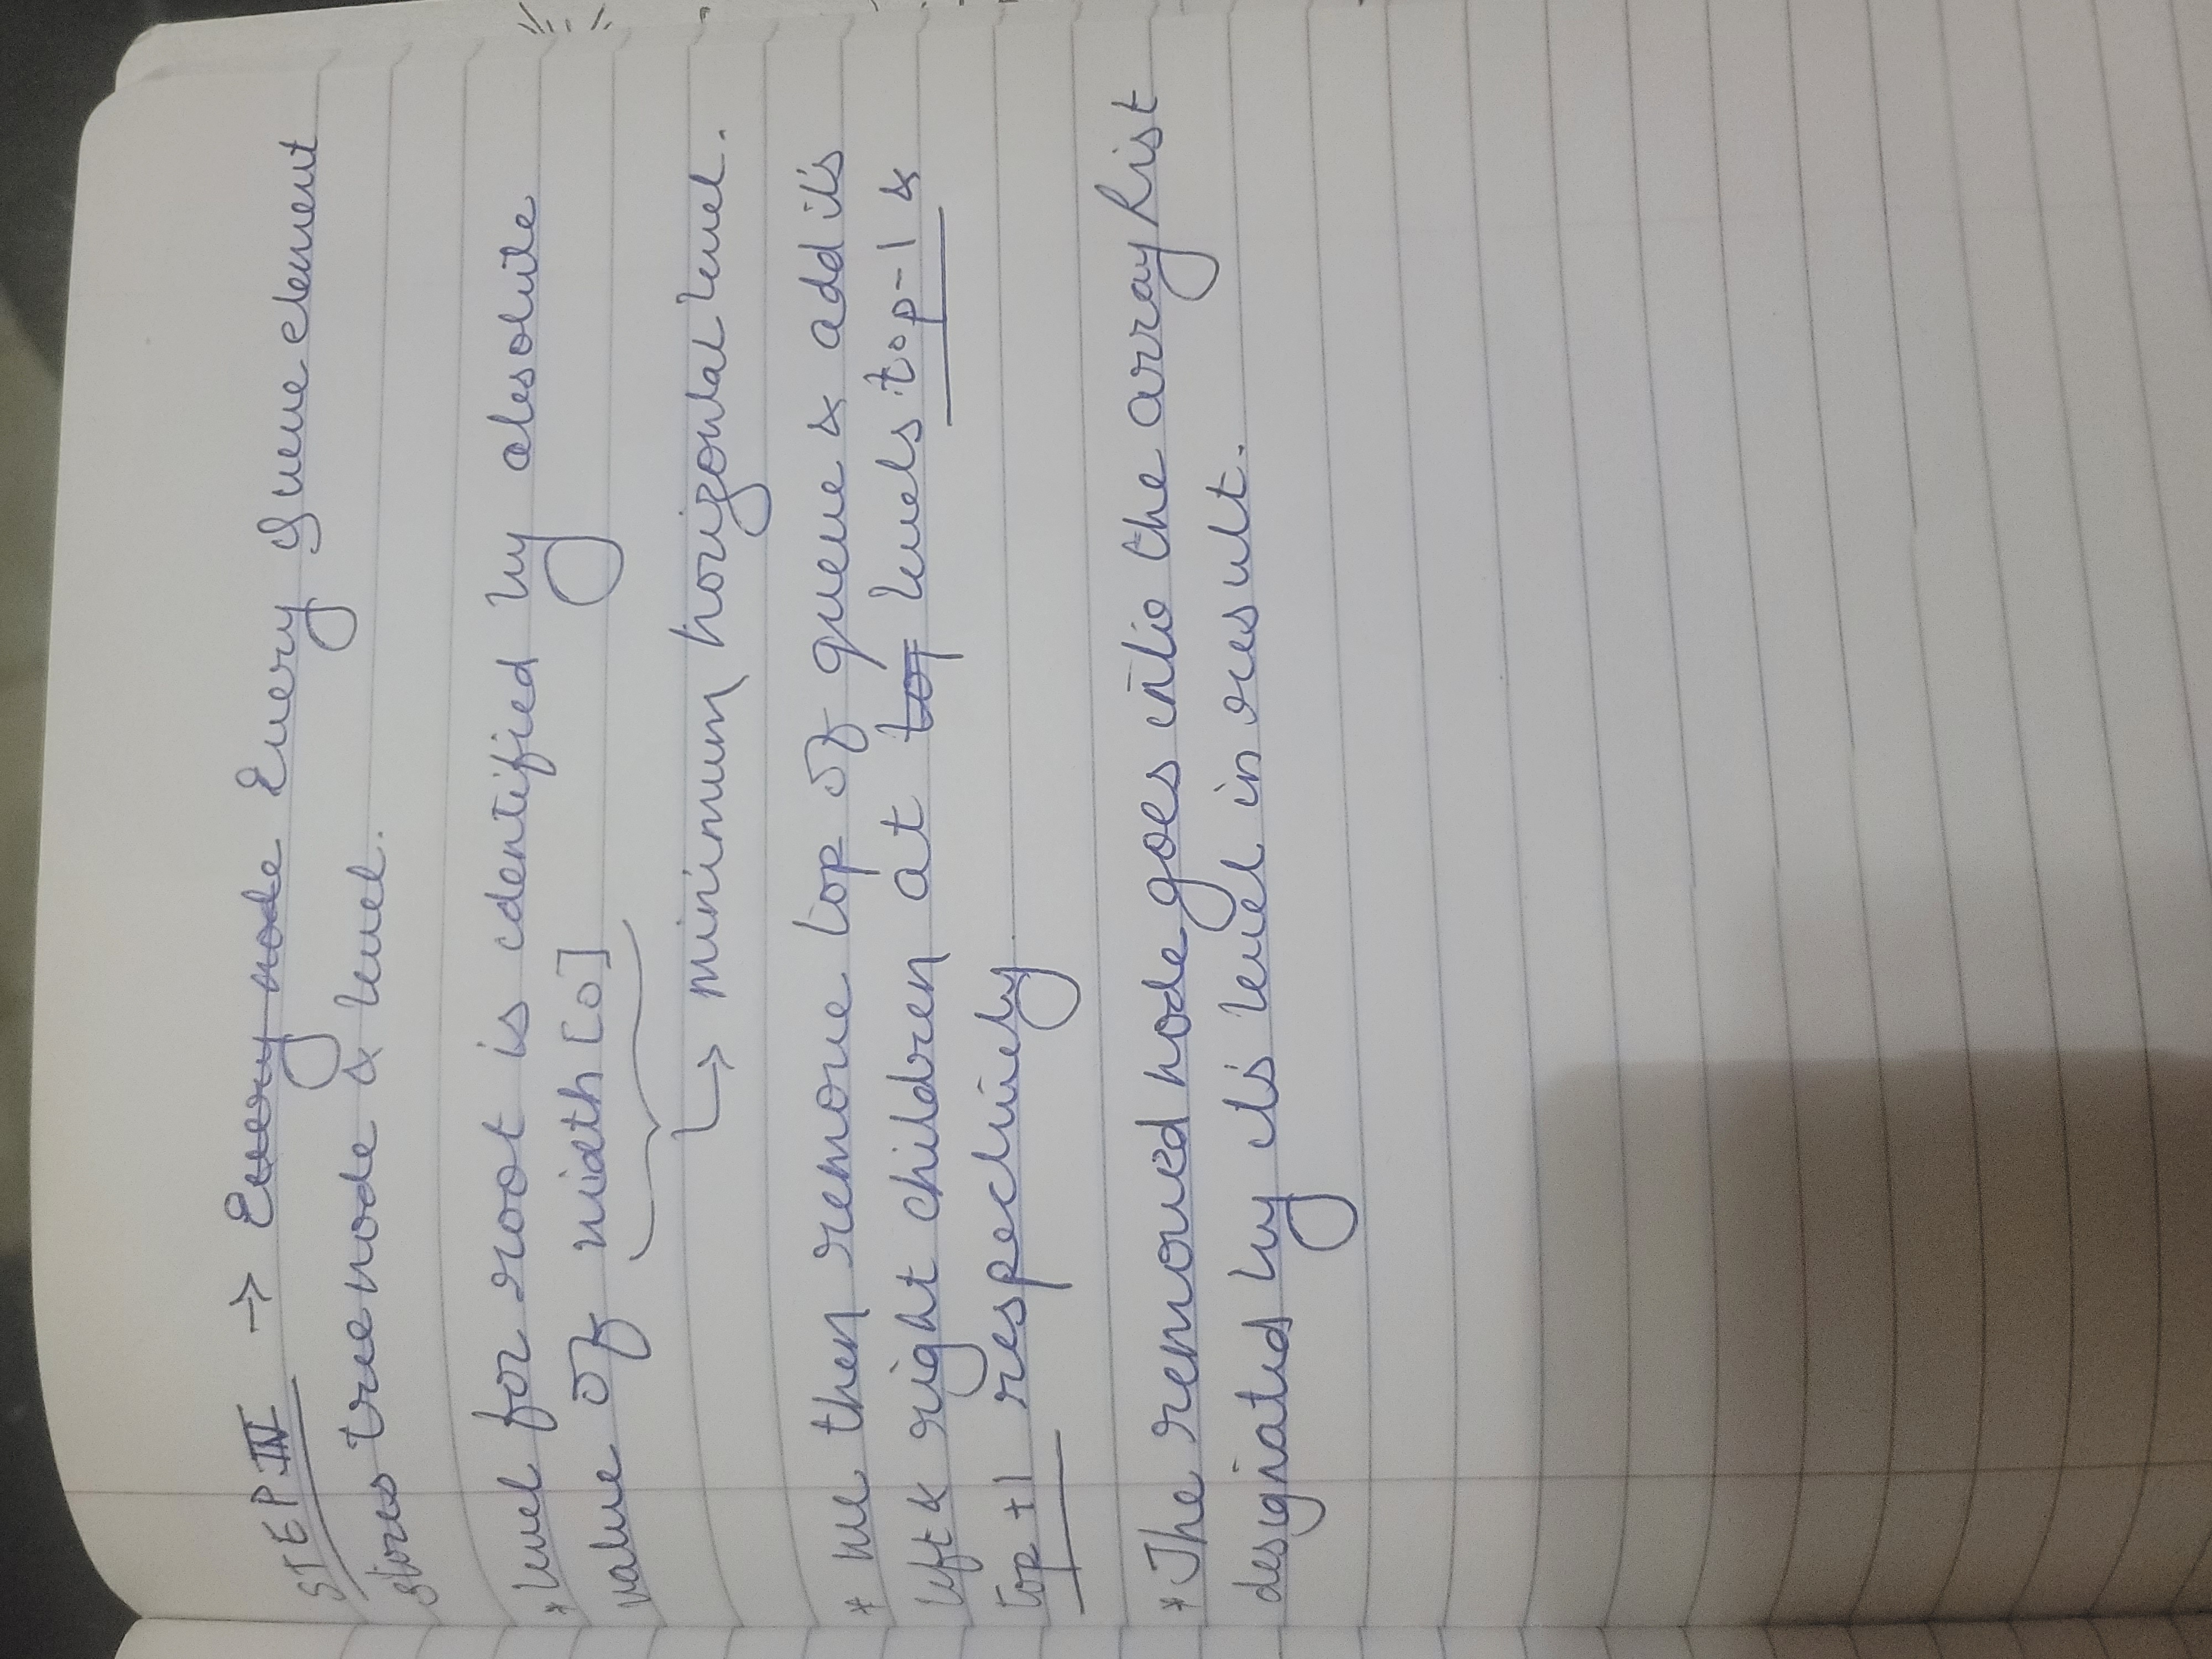 STEP IV → Every node Every Queue element
stores tree node & level.
* level for root is identified by absolute
value of width [0]
↳ minimum horizontal level.
* we then remove top of queue & add it's
left & right children at top levels top-1 &
top +1 respectively.
* The removed node goes into the array list
designated by it's level in result.